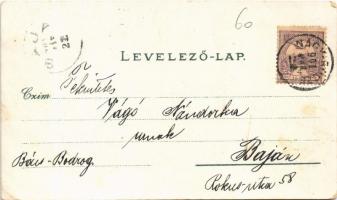 60
LEVELEZŐ-LAP.
Czím:
Tekintetes
Vágó Nándorka
urnak
Bács-Bodrog.
Baján
Rokus-utca 58